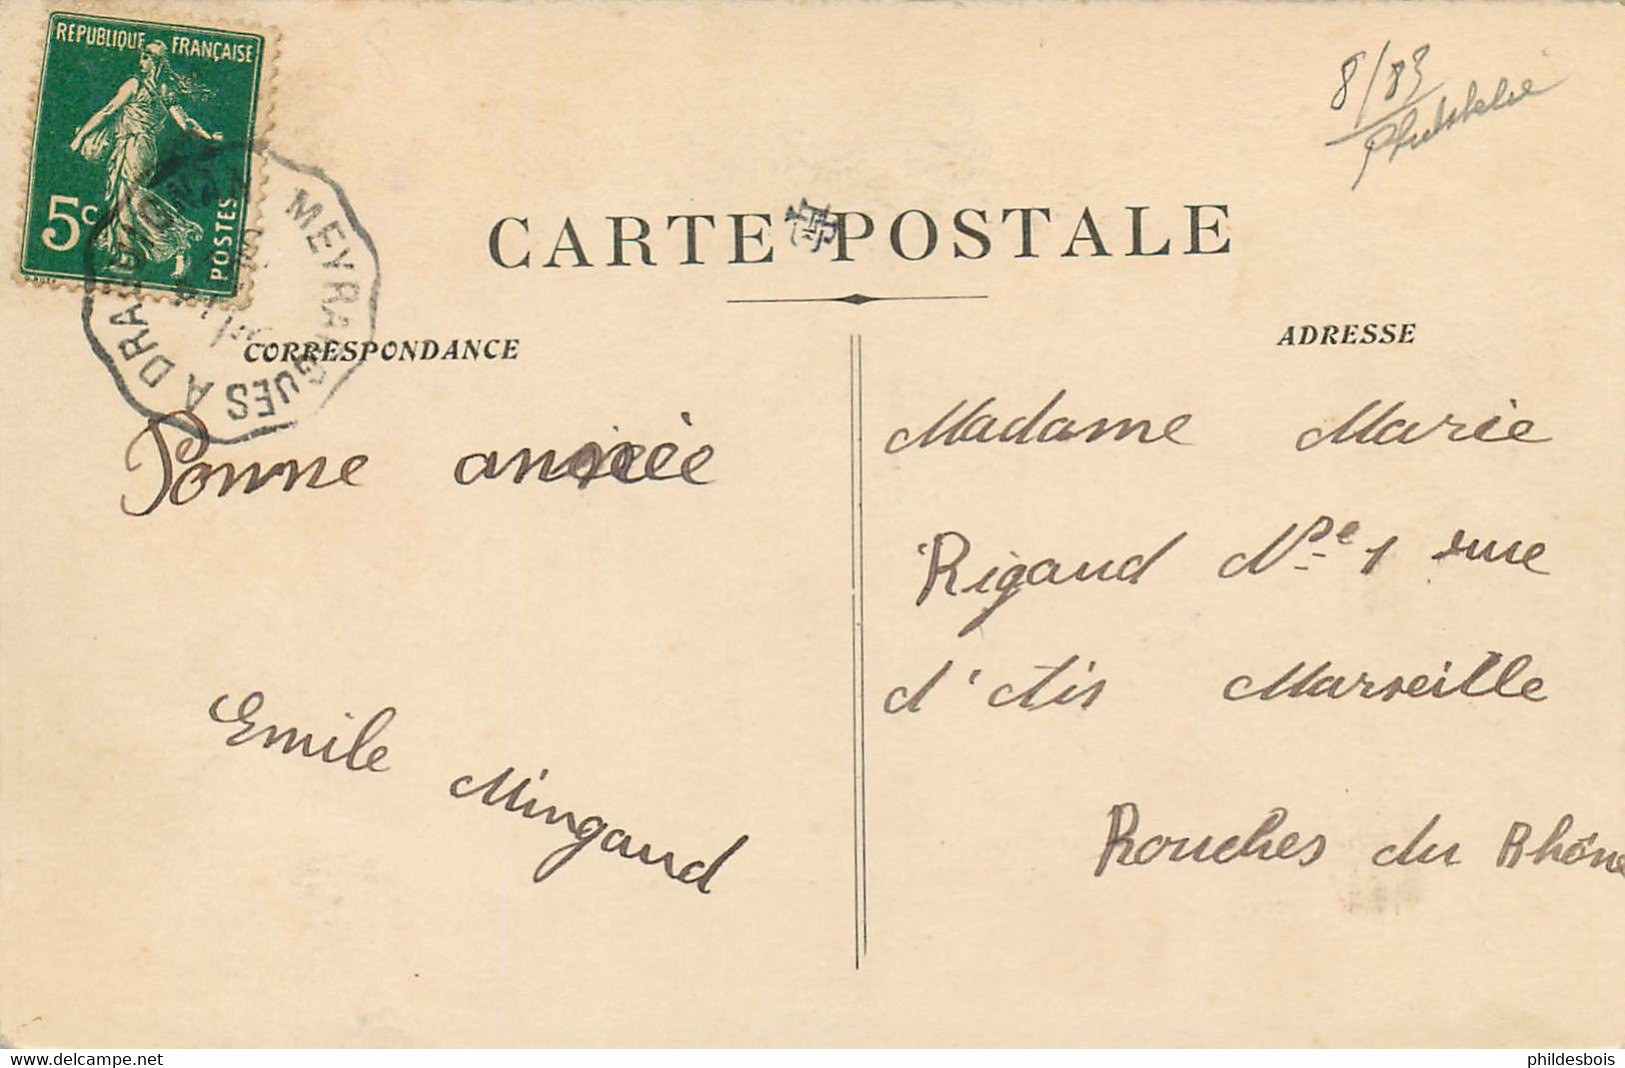 RÉPUBLIQUE FRANÇAISE
5c
POSTES
MEYRARGUES A DRAGUIGNAN
8/83
Philatelie
CARTE POSTALE
CORRESPONDANCE
ADRESSE
Bonne année
Emile Mingaud
Madame Marie
Rigaud Nº 1 rue
d'Aix Marseille
Bouches du Rhône
delcampe.net
phildesbois